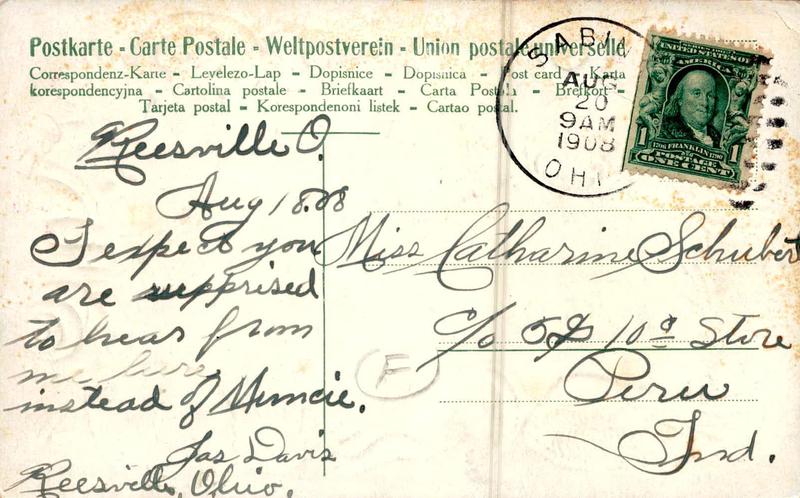 Postkarte - Carte Postale - Weltpostverein - Union postale universelle
Correspondenz-Karte - Levelezo-Lap - Dopisnice - Dopisnica - Post card - Karta
korespondencyjna - Cartolina postale - Briefkaart - Carta Postala - Brefkort -
Tarjeta postal - Korespondenoni listek - Cartao postal.
SABIN
AUG
20
9AM
1908
OHI
UNITED STATES OF
AMERICA
1 1
1706 FRANKLIN 1790
POSTAGE
ONE CENT
Reesville O.
Aug 18.08
I expect you
are supprised
to hear from
me here
instead of Muncie.
Jas Davis
Reesville, Ohio.
Miss Catharine Schubert
c/o 5 & 10¢ Store
Peru
Ind.
F